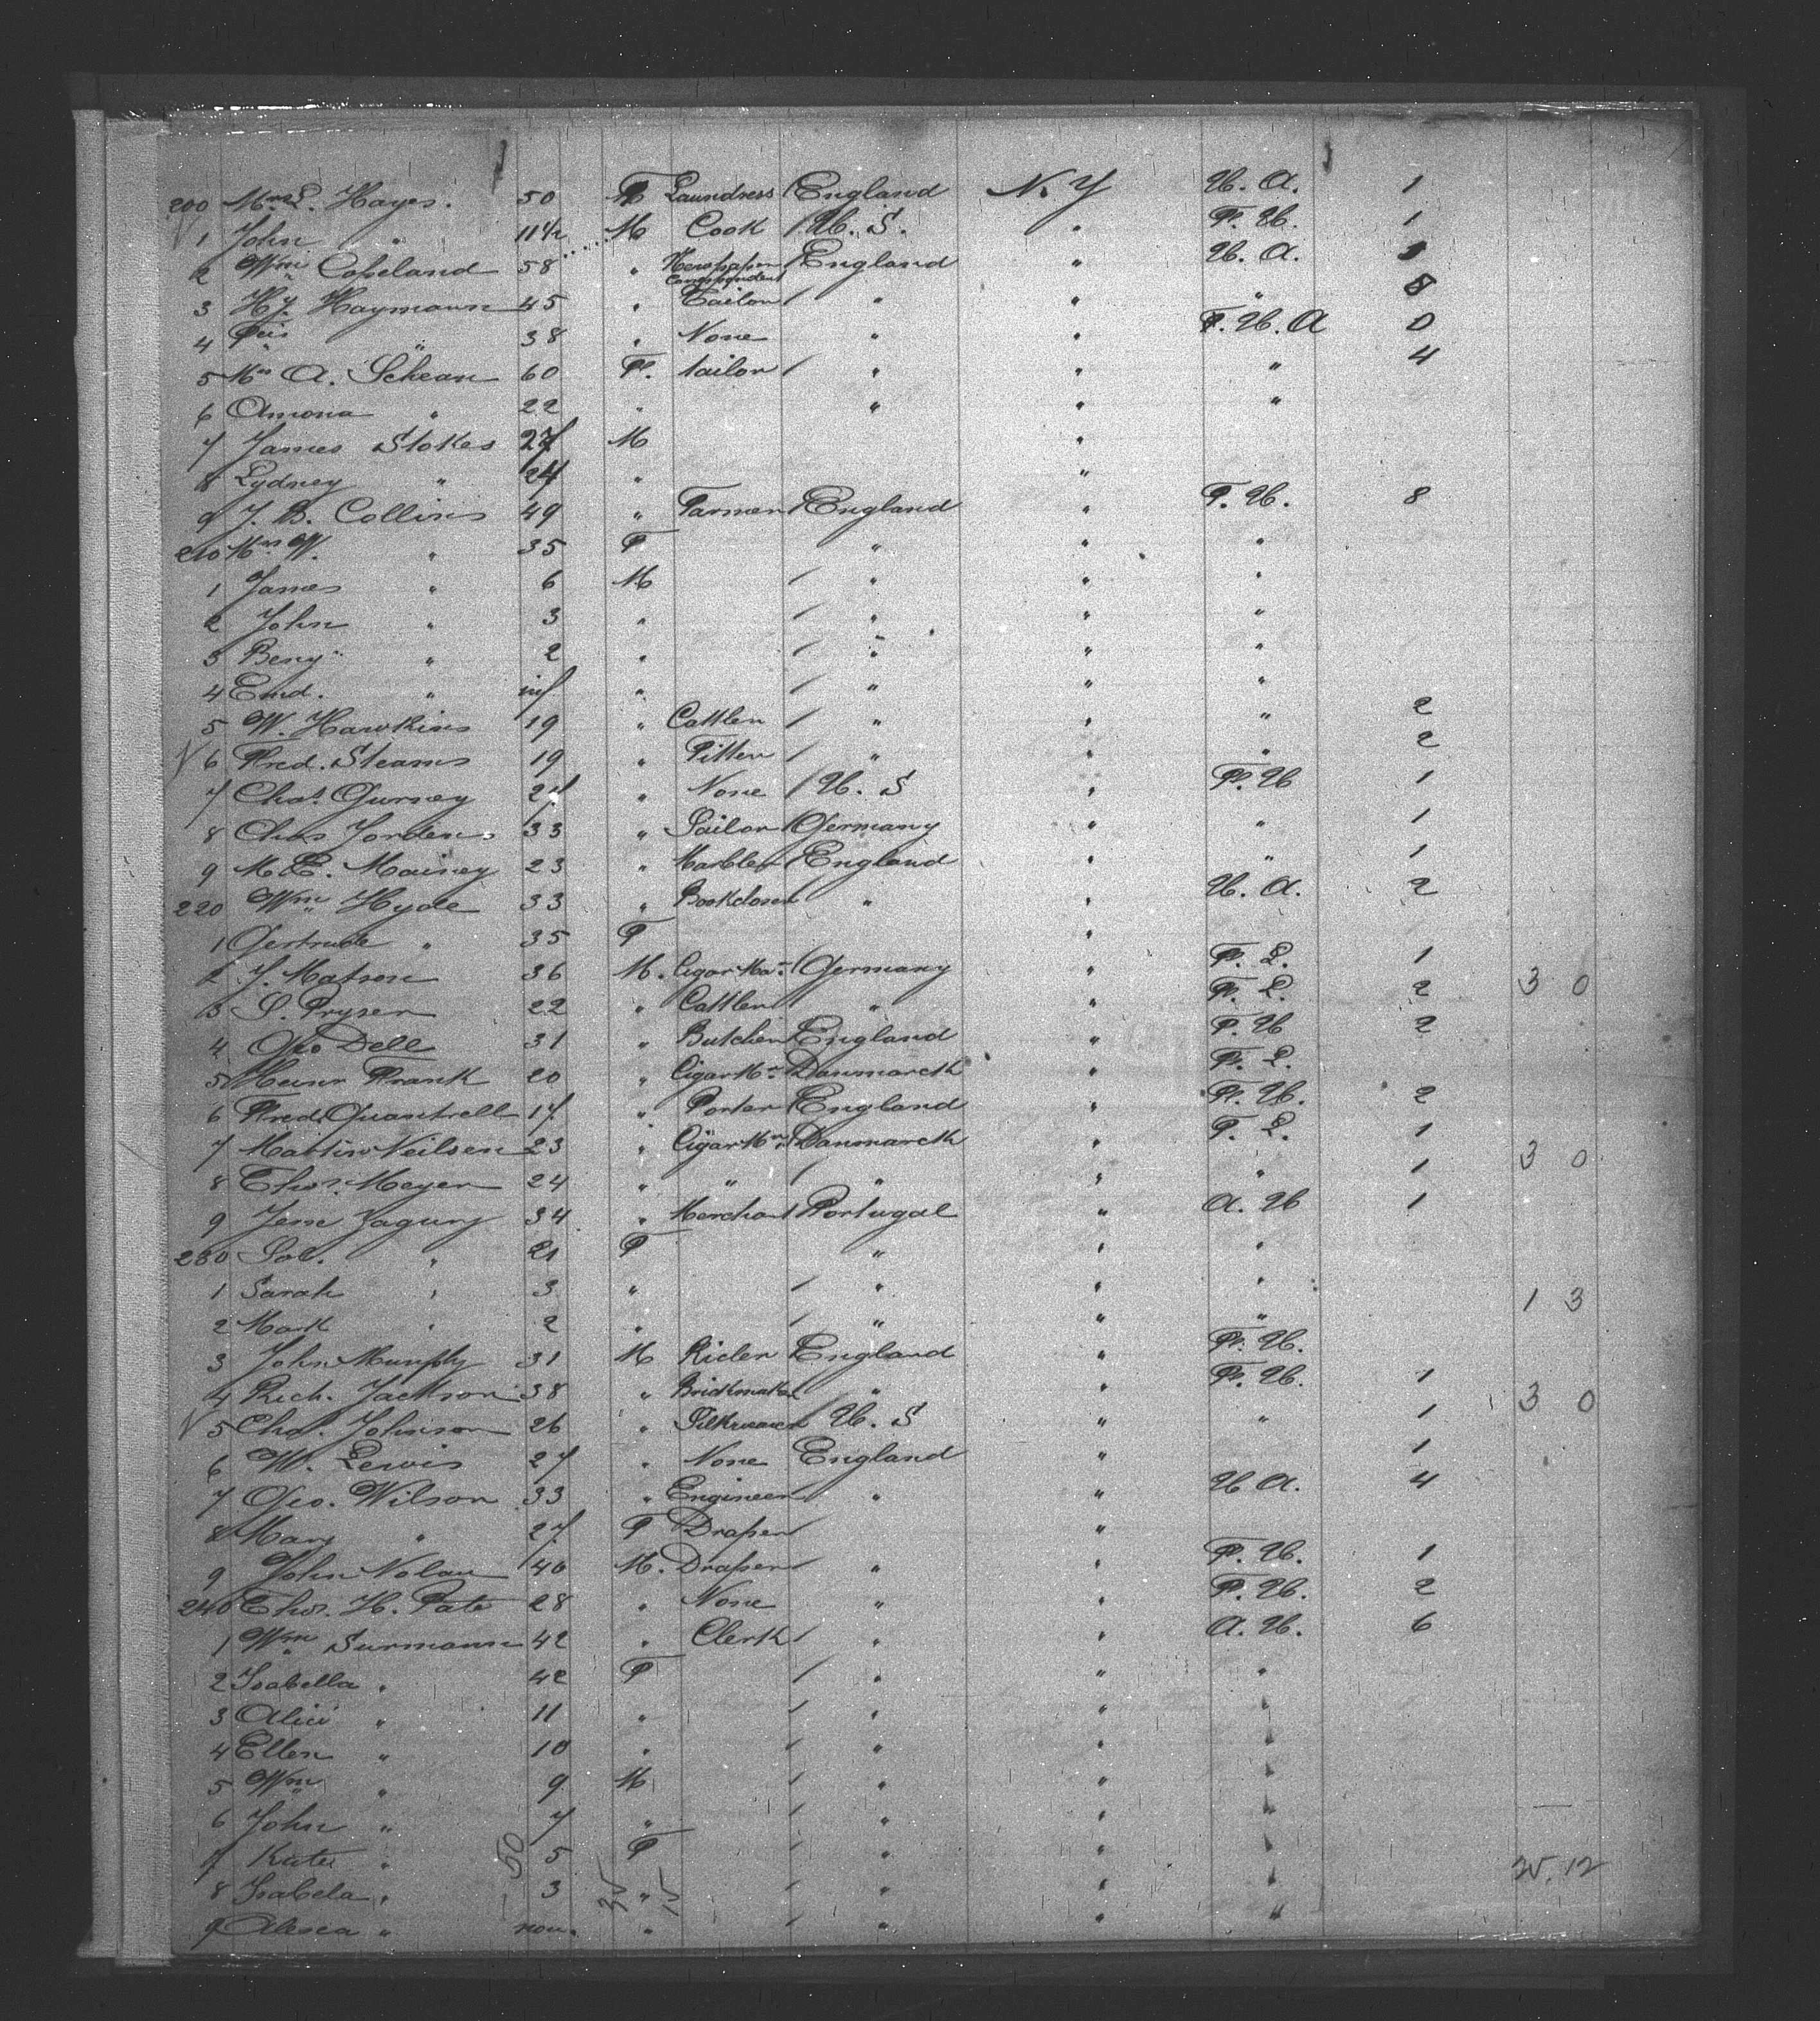 200 Mrs L. Hayes. 50 F Laundress England N.Y U. A. 1
1 John " 11½ M Cook U. S. " F. U. 1
2 Wm Copeland 58 " Newspaper Correspondent England " U. A.
3 Hy. Haymann 45 " Tailor " " " 8
4 38 " None " " F. U. A 0
5 Mrs A. Schean 60 F. tailor " " " 4
6 Amona " 22 " " " "
7 James Stokes 27 M "
8 Lydney " 24 " "
9 J. B. Collins 49 " Farmer England " F. U. 8
210 Mrs W. " 35 F " " "
1 James " 6 M " " "
2 John " 3 " " " "
3 Benj " 2 " " " "
4 Emd. " inf " " " "
5 W. Hawkins 19 " Cattler " " " 2
6 Fred. Steams 19 " Fitter " " " 2
7 Chas. Gurney 27 " None U. S " F. U 1
8 Chas Jordens 33 " Sailor Germany " " 1
9 M. E. Mainey 23 " Marbler England " " 1
220 Wm Hyde 33 " " " U. A. 2
1 Gertrude " 35 F "
2 J. Matson 36 M. Cigar Ma. Germany " F. L. 1
3 S. Pryser 22 " Cattler " " F. L. 2 3 0
4 Geo Dell 31 " Butcher England " F. U 2
5 Frank 20 " Cigar Mr Danmarck " F. L.
6 Fred Quantrell 17 " Porter England " F. U. 2
7 Martin Neilsen 23 " Cigar Mr Danmarck " F. L. 1
8 Thos. Meyer 24 " " " " " 1 3 0
9 Jesse Zagury 34 " Merchant Portugal " A. U 1
230 Sol. " 21 F " " "
1 Sarah " 3 " " " "
2 Mark " 2 " " " " 1 3
3 John Murphy 31 M Rider England " F. U.
4 Rich. Jackson 38 " Brickmaker " " F. U. 1
5 Chas. Johnson 26 " U. S " " 1 3 0
6 W. Lewis 27 " None England " 1
7 Geo. Wilson 33 " Engineer " " U A. 4
8 Mary " 27 F Draper "
9 John Nolan 40 M. Draper " " F. U. 1
240 Thos. H. Pate 28 " None " " F. U. 2
1 Wm Surmann 42 " Clerk " " A. U. 6
2 Isabella " 42 F " " "
3 Alice " 11 " " " "
4 Ellen " 10 " " " "
5 Wm " 9 M " " "
6 John " 7 " " " "
7 Kate " 5 F " " "
8 Isabela " 3 " " " "
9 " " " " "
50 35 15